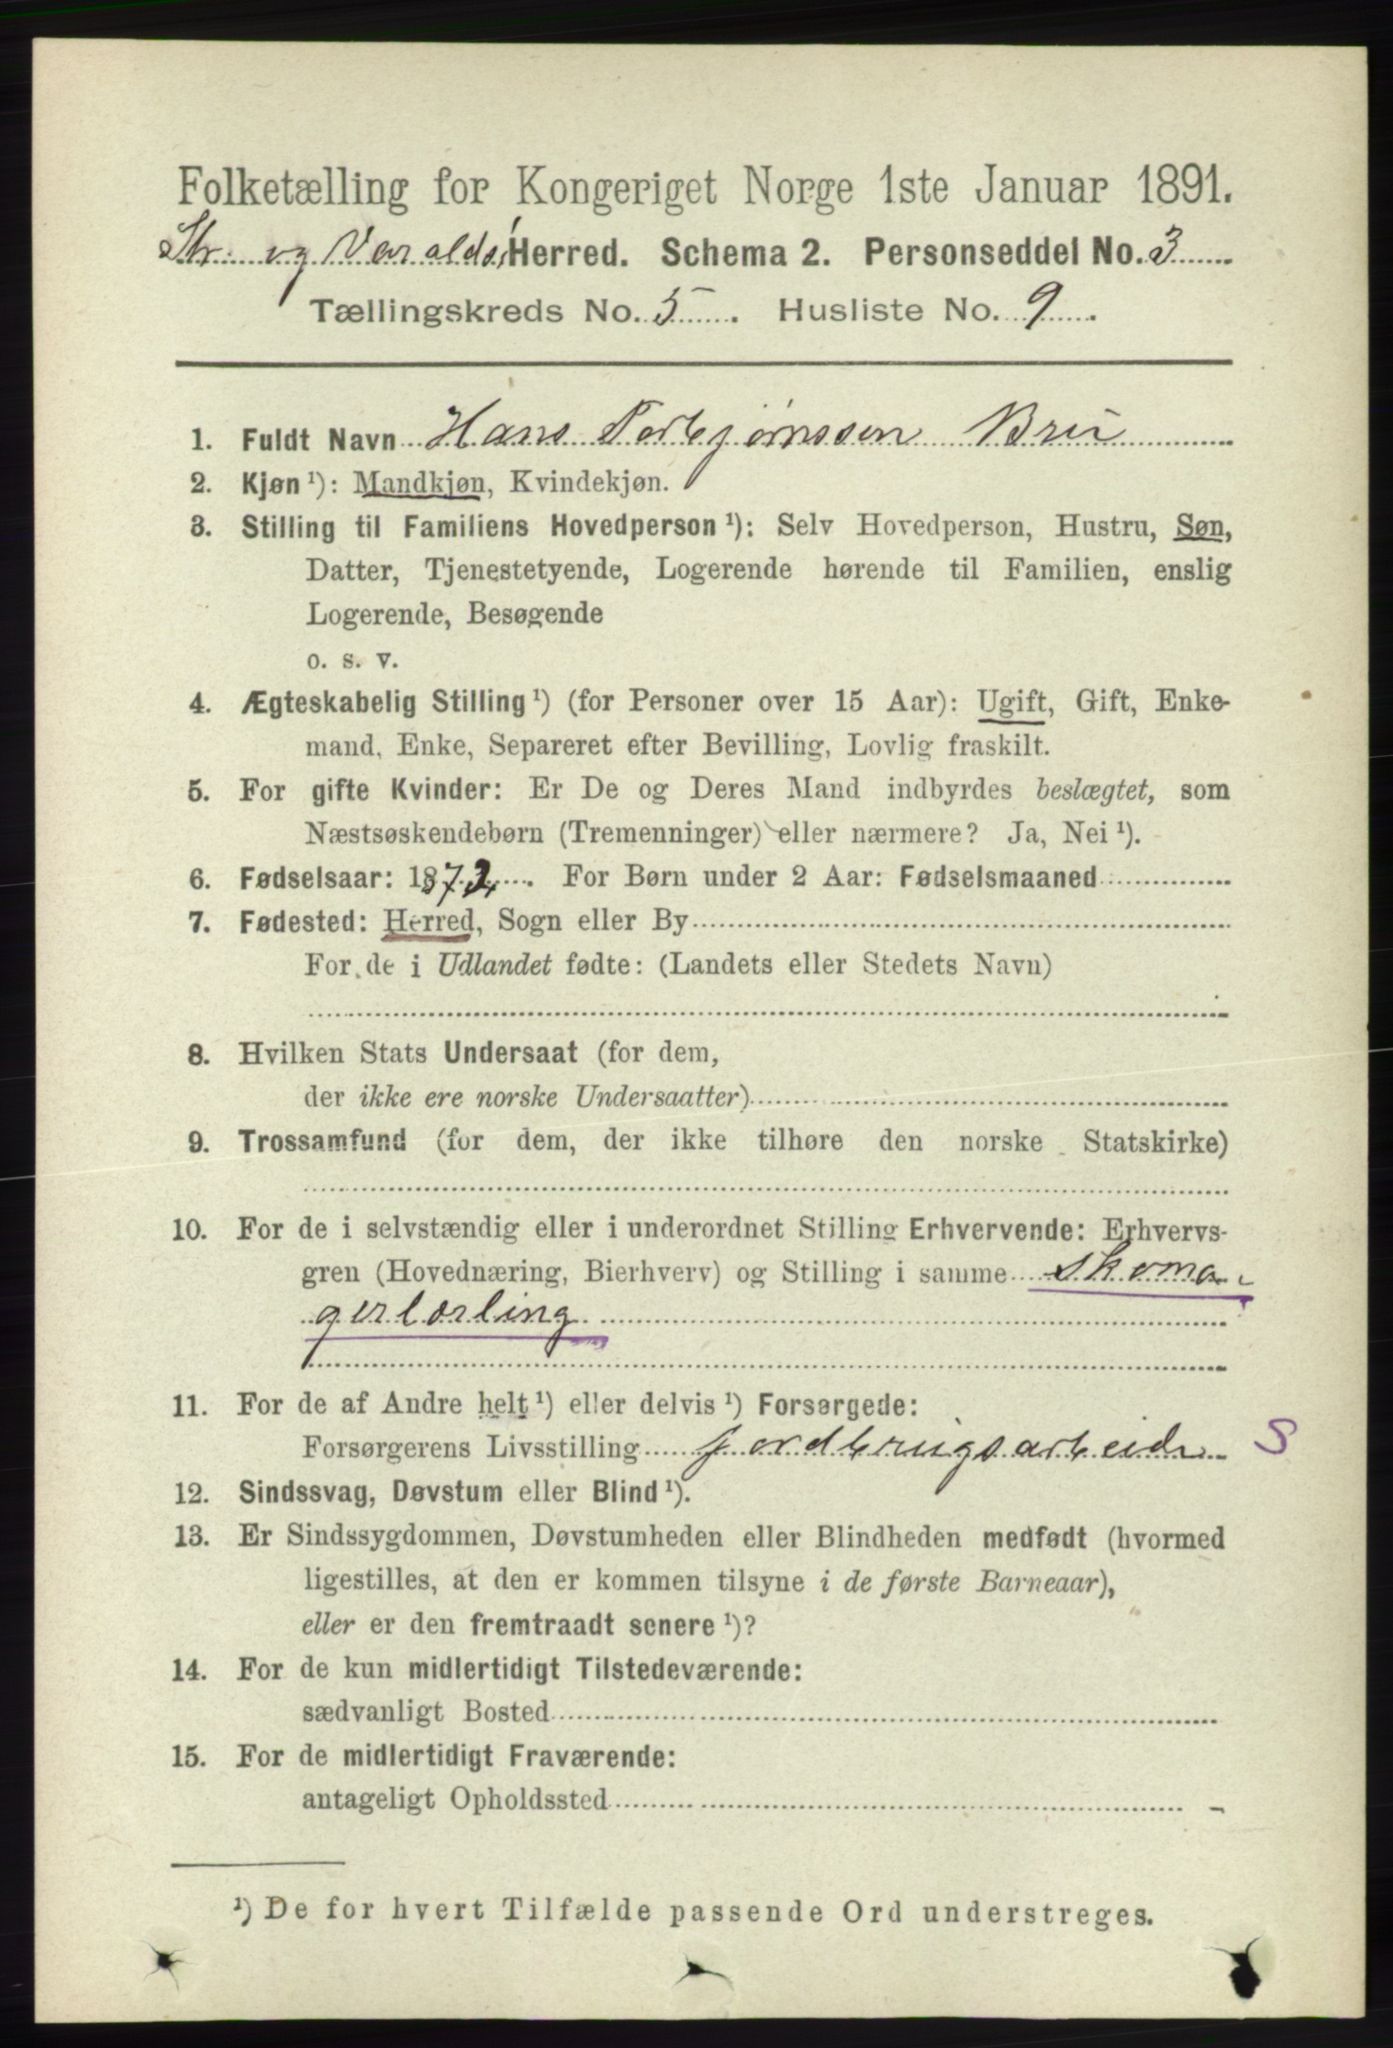 Folketælling for Kongeriget Norge 1ste Januar 1891.
Str. og Varaldsø Herred. Schema 2. Personseddel No. 3
Tællingskreds No. 5. Husliste No. 9.
1. Fuldt Navn Hans Torbjørnssen Brü
2. Kjøn ¹): Mandkjøn, Kvindekjøn.
3. Stilling til Familiens Hovedperson ¹): Selv Hovedperson, Hustru, Søn,
Datter, Tjenestetyende, Logerende hørende til Familien, enslig
Logerende, Besøgende
o. s. v.
4. Ægteskabelig Stilling ¹) (for Personer over 15 Aar): Ugift, Gift, Enke-
mand, Enke, Separeret efter Bevilling, Lovlig fraskilt.
5. For gifte Kvinder: Er De og Deres Mand indbyrdes beslægtet, som
Næstsøskendebørn (Tremenninger) eller nærmere? Ja, Nei ¹).
6. Fødselsaar: 1872. For Børn under 2 Aar: Fødselsmaaned
7. Fødested: Herred, Sogn eller By
For de i Udlandet fødte: (Landets eller Stedets Navn)
8. Hvilken Stats Undersaat (for dem,
der ikke ere norske Undersaatter)
9. Trossamfund (for dem, der ikke tilhøre den norske Statskirke)
10. For de i selvstændig eller i underordnet Stilling Erhvervende: Erhvervs-
gren (Hovednæring, Bierhverv) og Stilling i samme Skoma-
gerlærling
11. For de af Andre helt ¹) eller delvis ¹) Forsørgede:
Forsørgerens Livsstilling jordbrugsarbeider S
12. Sindssvag, Døvstum eller Blind ¹).
13. Er Sindssygdommen, Døvstumheden eller Blindheden medfødt (hvormed
ligestilles, at den er kommen tilsyne i de første Barneaar),
eller er den fremtraadt senere ¹)?
14. For de kun midlertidigt Tilstedeværende:
sædvanligt Bosted
15. For de midlertidigt Fraværende:
antageligt Opholdssted
¹) De for hvert Tilfælde passende Ord understreges.